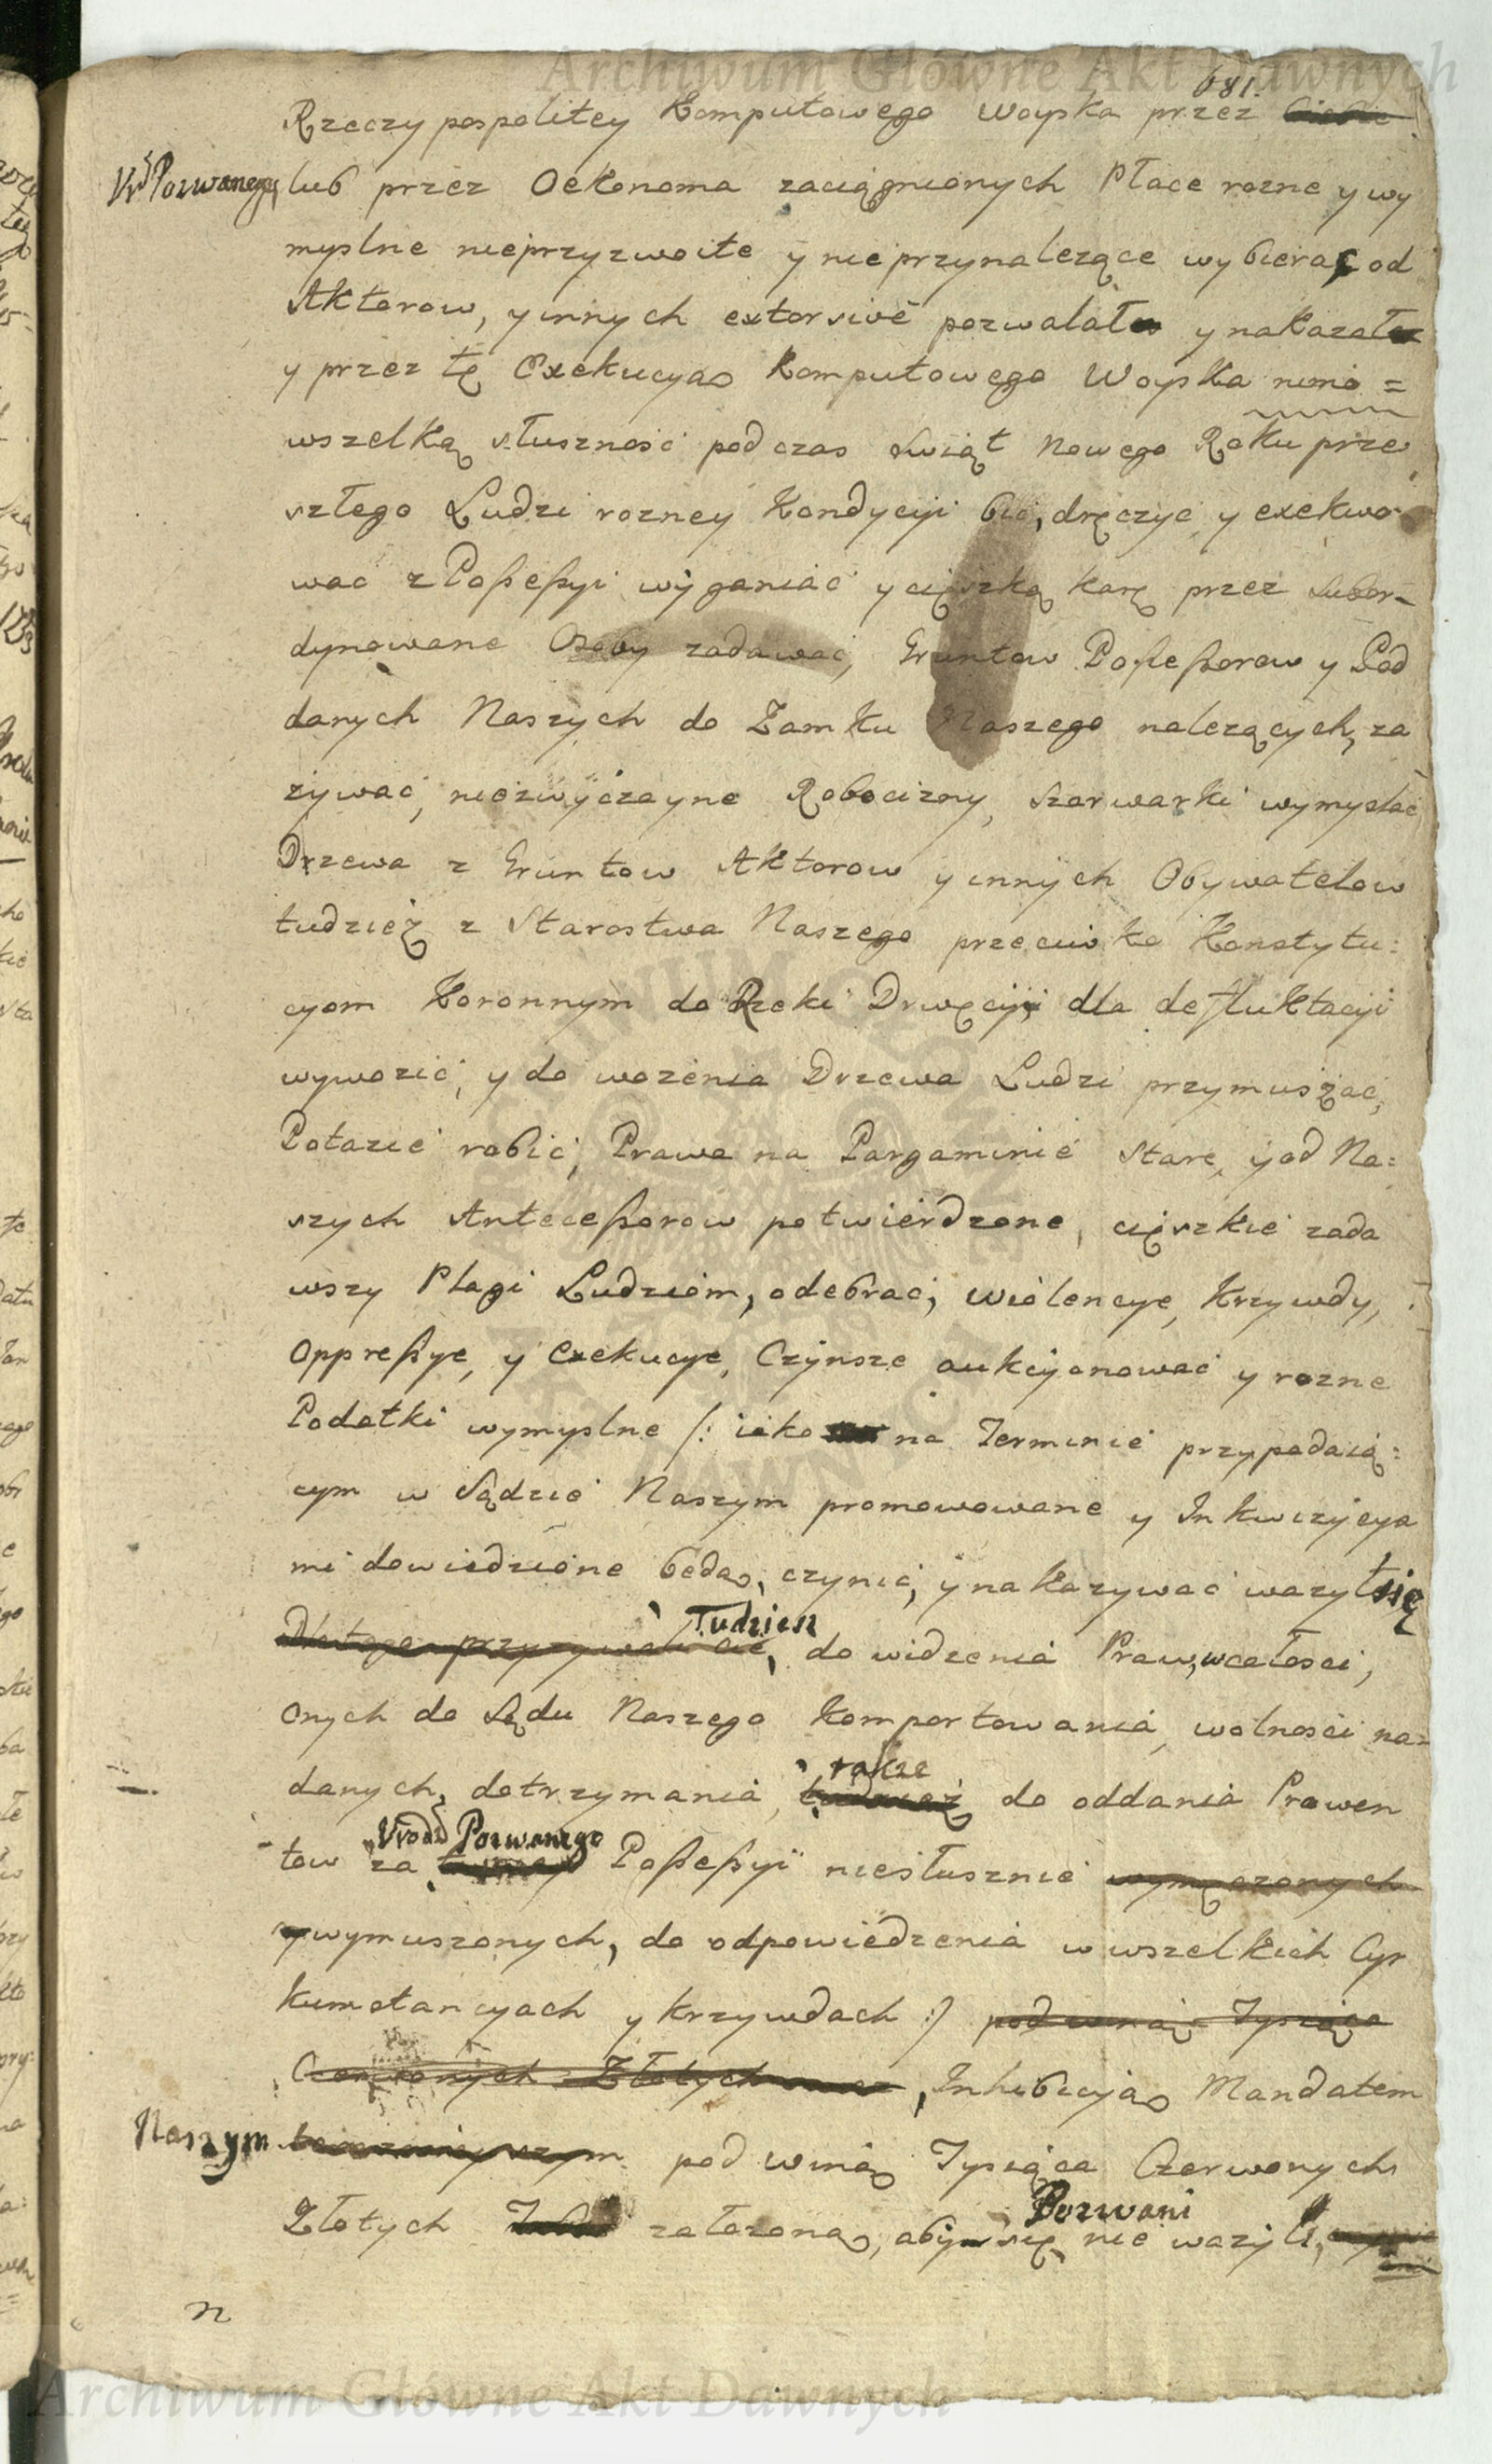 Archiwum Główne Akt Dawnych
681.
Rzeczy pospolitey Komputowego Woyska przez
Ur Pozwanego lub przez Oekonoma zaciągnionych Płace rozne y wy
myslne nieprzyzwoite y nieprzynalezące wybierac od
Aktorow, y innych extorsive pozwalał y nakazał
y przez tę Exekucyą Komputowego Woyska mimo =
wszelką słusznosc podczas Swiąt Nowego Roku prze
szłego Ludzi rozney Kondycyi bic, dręczyc y exekwo
wac z Poßeßyi wyganiać y cięszką karę przez Subor-
dynowane Osoby zadawac, Gruntow Poßeßorow y Pod
danych Naszych do Zamku Naszego nalezących, za
zywać, niezwyczayne Robocizny, Szarwarki wymyslac
Drzewa z Gruntow Aktorow y innych Obywatelow
tudzież z Starostwa Naszego przeciwko Konstytu:
cyom Koronnym do Rzeki Drwęcyi dla defluktacyi
wywozić, y do wozenia Drzewa Ludzi przymuszac,
Potazie robić, Prawa na Pargaminie Stare, y od Na:
szych Anteceßorow potwierdzone, cięszkie zada
wszy Plagi Ludziom, odebrac, wiolencye, Krzywdy,
Oppreßye, y Exekucye, Czynsze aukcyonować y rozne
Podatki wymyslne /: iako na Terminie przypadaią:
cym w Sądzie Naszym promowowane y Inkwizycya
mi dowiedzione będą, czynić, y nakazywać wazył się
Dlatego przyzywa cie, Tudziesz do widzenia Praw, wcałosci,
Onych do Sądu Naszego komportowania, wolnosci na=
danych, dotrzymania, tudziez takze do oddania Prowen
tow za Urodz Pozwanego Poßeßyi niesłusznie wymęczonych
y wymuszonych, do odpowiedzenia w wszelkich Cyr
kumstancyach y krzywdach :/ pod winą Tysiąca
Czerwonych Złotych, Inhibicyą Mandatem
Naszym pod winą Tysiąca Czerwonych
Złotych załozoną, aby się Pozwani nie wazyli,
n
Archiwum Główne Akt Dawnych